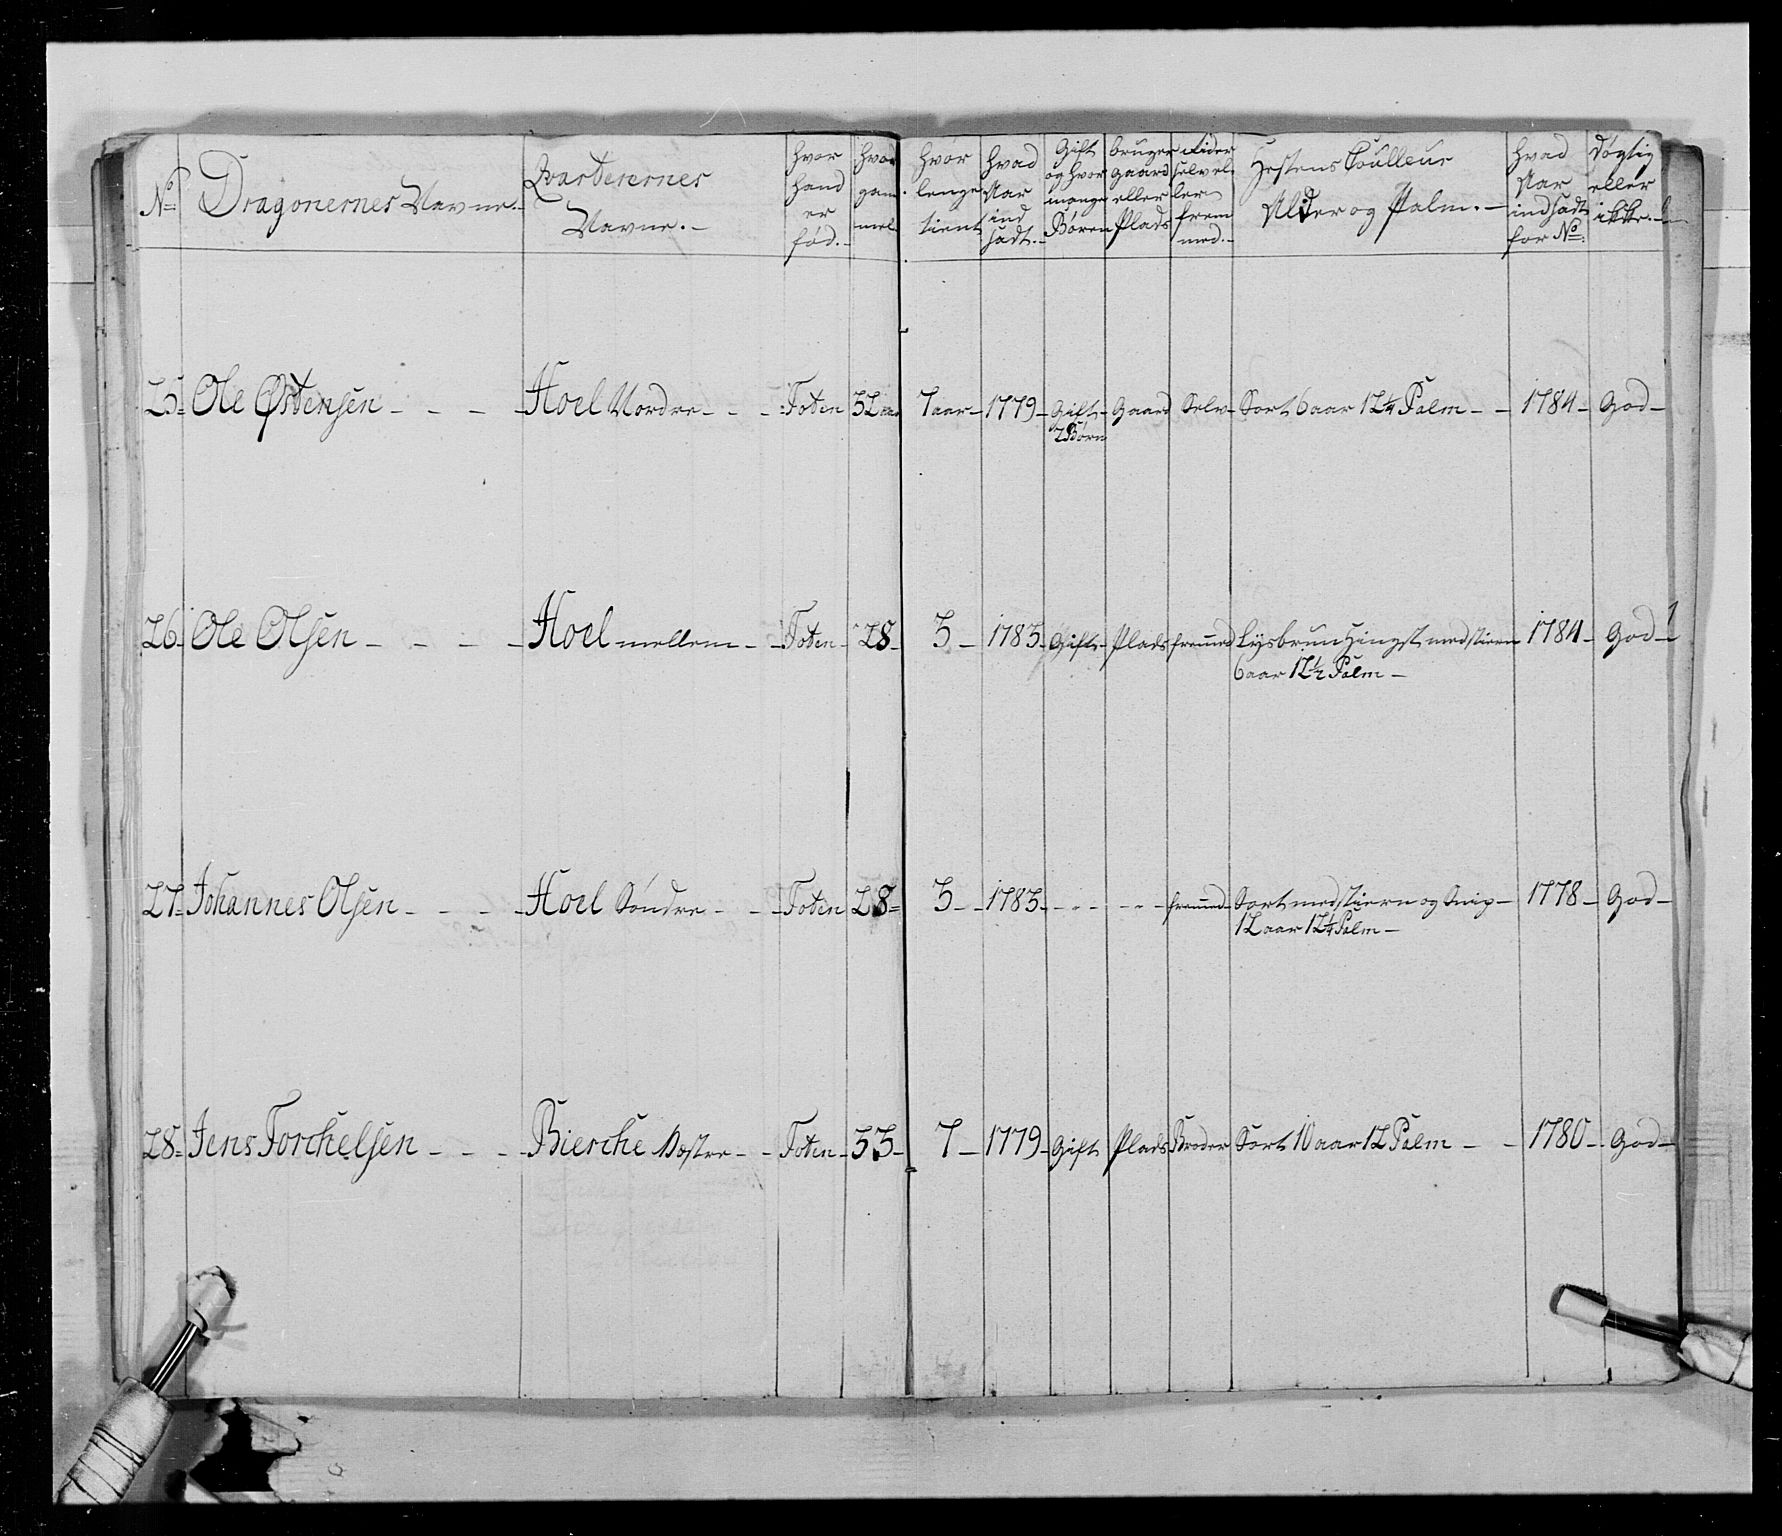 No Dragonernes Navne.- Qvarterernes Navne.- hvor hand er fød.- hvor gam mel hvor lenge tient hvad Aar ind sadt.- Gift og hvor mange Børen bruger gaard eller Plads Rider selv el ler frem med.- Hestens Coulleur Alder og Palm.- hvad Aar indsadt for No: Døgtig eller ikke.-
25- Ole Østensen - - - Hoel Nordre - - - Toten 32 aar 7 aar- 1779- Gift- Gaard Selv- Sort 6 aar 12¼ Palm - - 1784- God-
2 Børn
26- Ole Olsen - - - - Hoel mellem - - Toten- 28- 3- 1783- Gift- Plads fremmed Lysbrun Hingst med stiern 1784- God-
6 aar 12½ Palm -
27- Johannes Olsen - - - - Hoel Søndre - - - Toten 28- 3 - - 1783- - - - - - fremmed- Sort med stiern og Snip- 1778- God-
12 aar 12¼ Palm -
28- Jens Torchelsen - - - - Bierche Vestre - - Toten- 33- 7- 1779- Gift Plads Broder Sort 10 aar 12 Palm - - 1780- God-